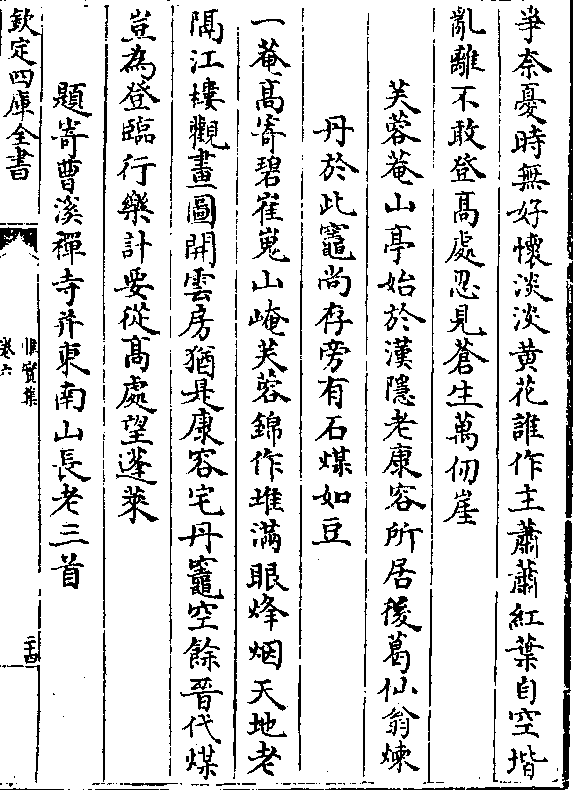 爭奈憂時無好懷淡淡黄花誰作主蕭蕭紅葉自空堦
亂離不敢登髙處忍見蒼生萬仞崖
芙蓉菴山亭始於漢隱老康容所居後葛仙翁煉
丹於此竈尚存旁有石煤如豆
一菴髙寄碧崔嵬山崦芙蓉錦作堆滿眼烽烟天地老
隔江樓觀畫圖開雲房猶是康容宅丹竈空餘晉代煤
豈為登臨行樂計要從髙處望蓬萊
題寄曹溪禪寺并東南山長老三首
欽定四庫全書
惟實集
卷六
二十四